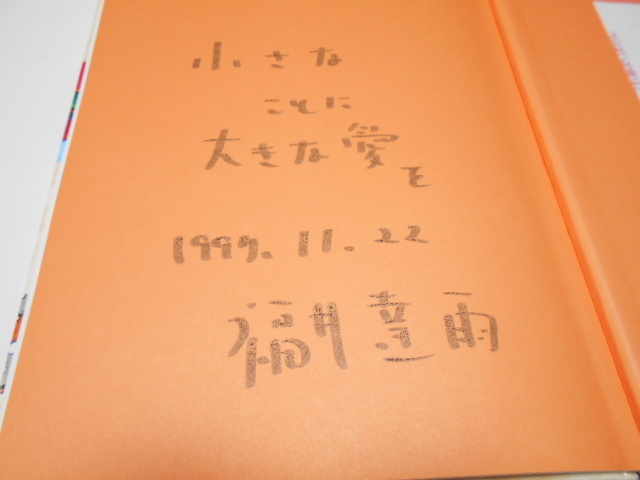 小さな
ことに
大きな愛を
1997.11.22
福井達雨